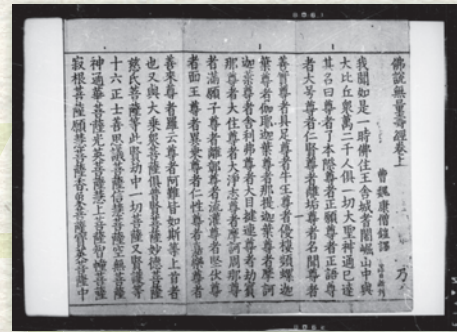 佛說無量壽經卷上
曹魏康僧鎧譯 乃
我聞如是一時佛住王舍城耆闍崛山中與
大比丘衆萬二千人俱一切大聖神通已達
其名曰尊者了本際尊者正願尊者正語尊
者大号尊者仁賢尊者離垢尊者名聞尊者
善實尊者具足尊者牛王尊者優樓頻螺迦
葉尊者伽耶迦葉尊者那提迦葉尊者摩訶
迦葉尊者舍利弗尊者大目揵連尊者劫賓
那尊者大住尊者大淨志尊者摩訶周那尊
者滿願子尊者離障尊者流灌尊者堅伏尊
者面王尊者異乘尊者仁性尊者嘉樂尊者
善來尊者羅云尊者阿難皆如斯等上首者
也又與大乘衆菩薩俱普賢菩薩妙德菩薩
慈氏菩薩等此賢劫中一切菩薩又賢護等
十六正士善思議菩薩信慧菩薩空無菩薩
神通華菩薩光英菩薩慧上菩薩智幢菩薩
寂根菩薩願慧菩薩香象菩薩寶英菩薩中